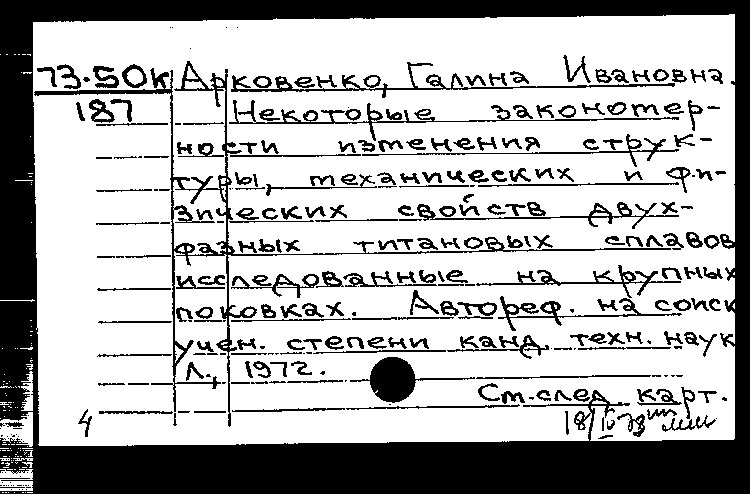 73-50к Арковенко, Галина Ивановна.
187 Некоторые закономер-
ности изменения струк-
туры, механических и фи-
зических свойств двух-
фазных титановых сплавов
исследованные на крупных
поковках. Автореф. на соиск
учен. степени канд. техн. наук
Л., 1972.
См. след. карт.
4 18/IV-73